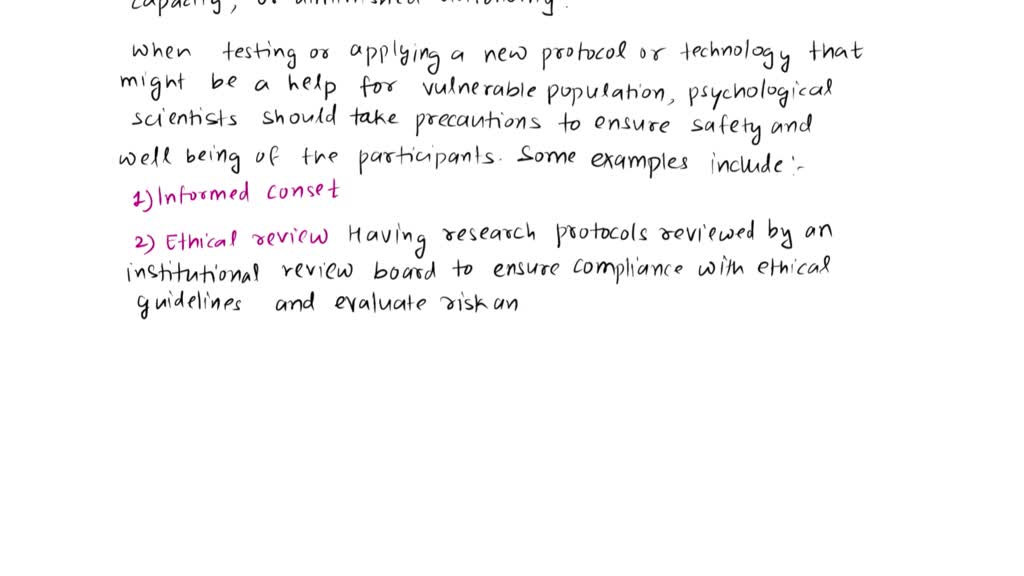 capacity, or diminished autonomy.
When testing or applying a new protocol or technology that
might be a help for vulnerable population, psychological
scientists should take precautions to ensure safety and
well being of the participants. Some examples include:-
1) Informed conset
2) Ethical review Having research protocols reviewed by an
institutional review board to ensure compliance with ethical
guidelines and evaluate risk an